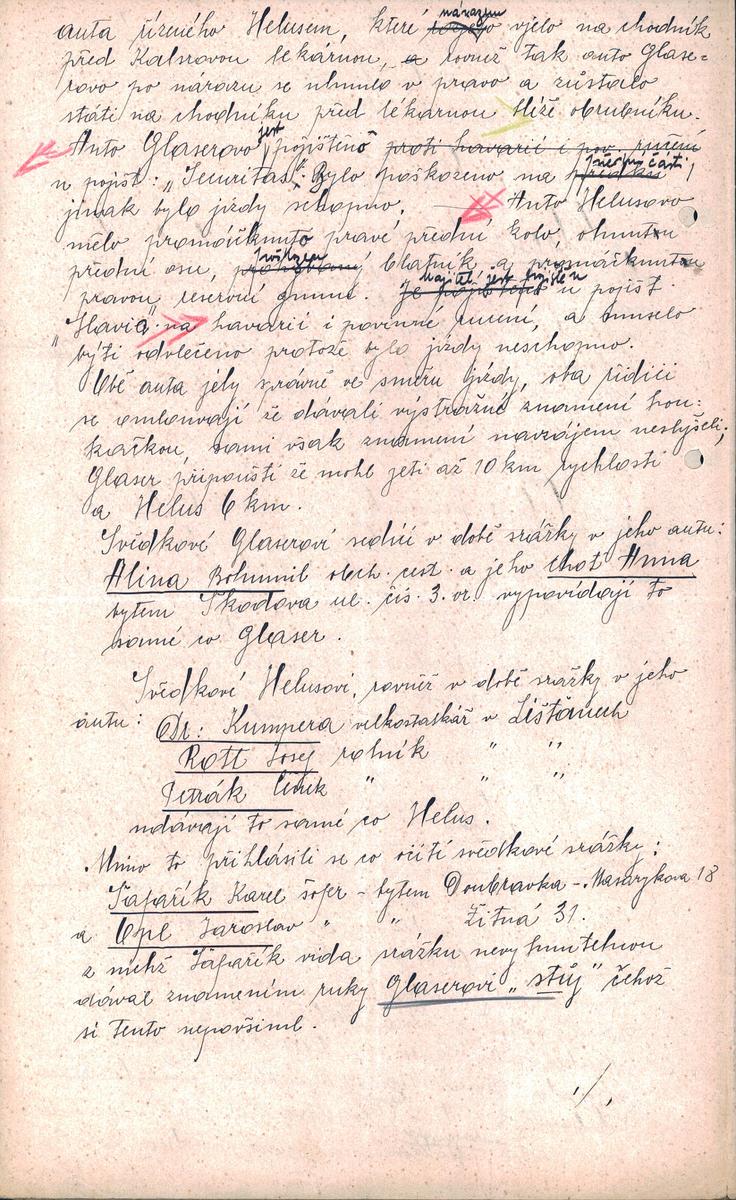 auta řízeného Helusem, které nárazem vjelo na chodník
před Kalsovou lékárnou, a rovněž tak auto Glase-
rovo po nárazu se uhnulo v pravo a zůstalo
státi na chodníku před lékárnou blíže obrubníku.
Auto Glaserovo jest pojištěno proti havarii i pov. ručení
u pojišť. „Securitas". Bylo poškozeno na přední části,
jinak bylo jízdy schopno. Auto Helusovo
mělo promáčknuto pravé přední kolo, ohnutou
přední osu, blatník a promáčknutou
pravou reservní gumu. Majitel jest pojištěn u pojišť.
„Slavia" na havarii i povinné ručení, a muselo
býti odvlečeno protože bylo jízdy neschopno.
Obě auta jely správně ve směru jízdy, oba řidiči
se omlouvají že dávali výstražné znamení hou-
kačkou, sami však znamení navzájem neslyšeli;
Glaser připouští že mohl jeti až 10 km rychlostí
a Helus 6 km.
Svědkové Glaserovi sedící v době srážky v jeho autu:
Alina Bohumil obch. cest. a jeho choť Anna
bytem Škodova ul. čís. 3. vypovídají to
samé co Glaser.
Svědkové Helusovi, rovněž v době srážky v jeho
autu: Dr. Kumpera velkostatkář v Líšťanech
Rott Josef rolník " "
Petrák Čeněk " " "
udávají to samé co Helus.
Mimo to přihlásili se co očití svědkové srážky:
Šafařík Karel šofer - bytem Doubravka - Masarykova 18
a Opl Jaroslav " " Žitná 31.
z nichž Šafařík vida srážku nevyhnutelnou
dával znamením ruky Glaserovi „stůj" čehož
si tento nepovšiml.
./.